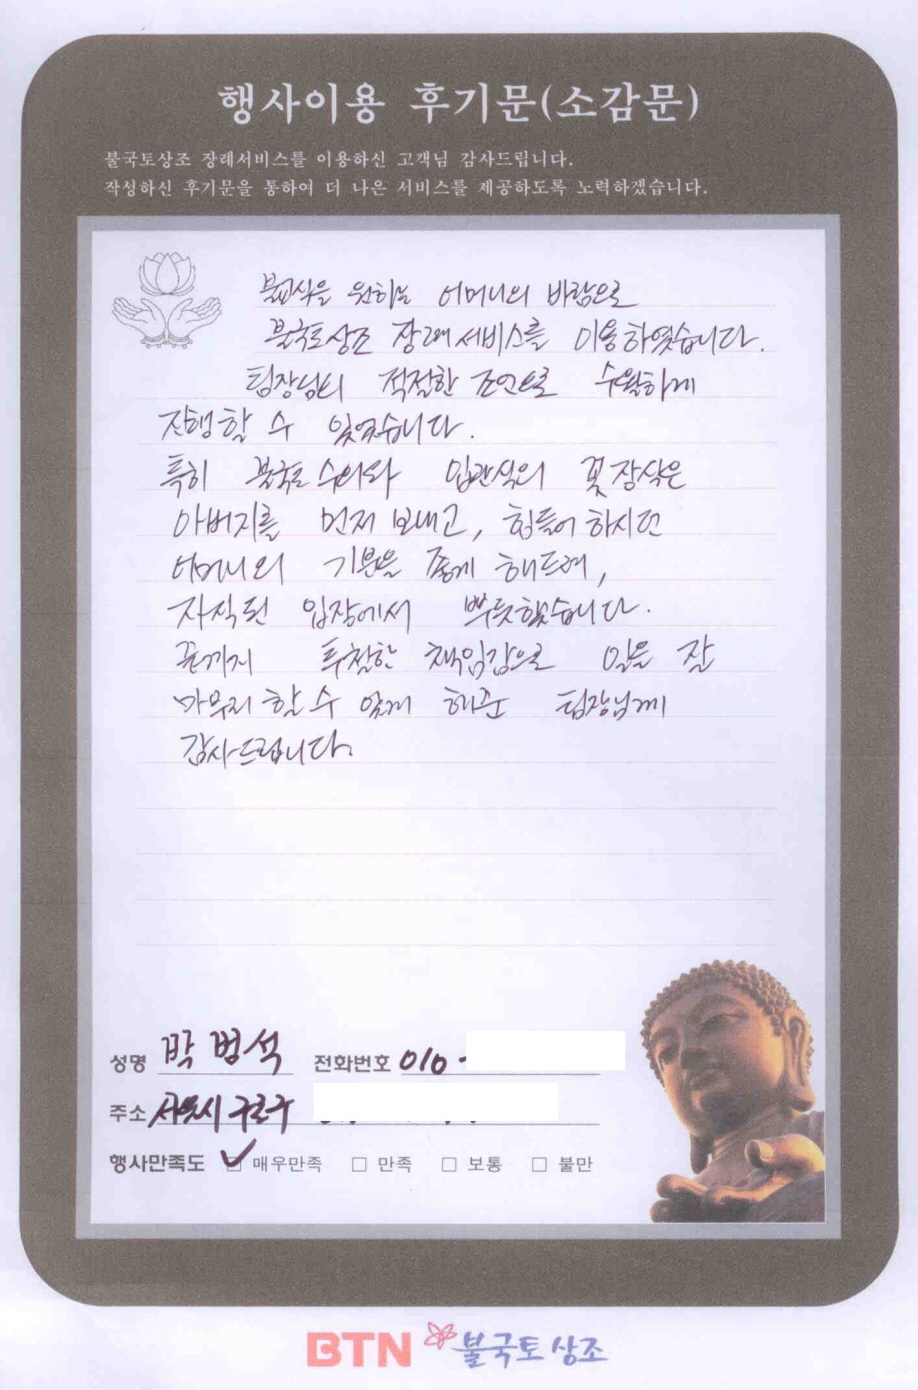 행사이용 후기문(소감문)
불국토상조 장례서비스를 이용하신 고객님 감사드립니다.
작성하신 후기문을 통하여 더 나은 서비스를 제공하도록 노력하겠습니다.
불교식을 원하는 어머니의 바람으로
불국토상조 장례서비스를 이용하였습니다.
팀장님의 적절한 조언으로 수월하게
진행할 수 있었습니다.
특히 불국토 수의와 입관식의 꽃장식은
아버지를 먼저 보내고, 힘들어 하시던
어머니의 기분을 좋게 해드려,
자식된 입장에서 뿌듯했습니다.
끝까지 투철한 책임감으로 일을 잘
마무리 할 수 있게 해준 팀장님께
감사드립니다.
성명 박범석 전화번호 010 -
주소 서울시 구로구
행사만족도 ☑ 매우만족 □ 만족 □ 보통 □ 불만
BTN 불국토상조